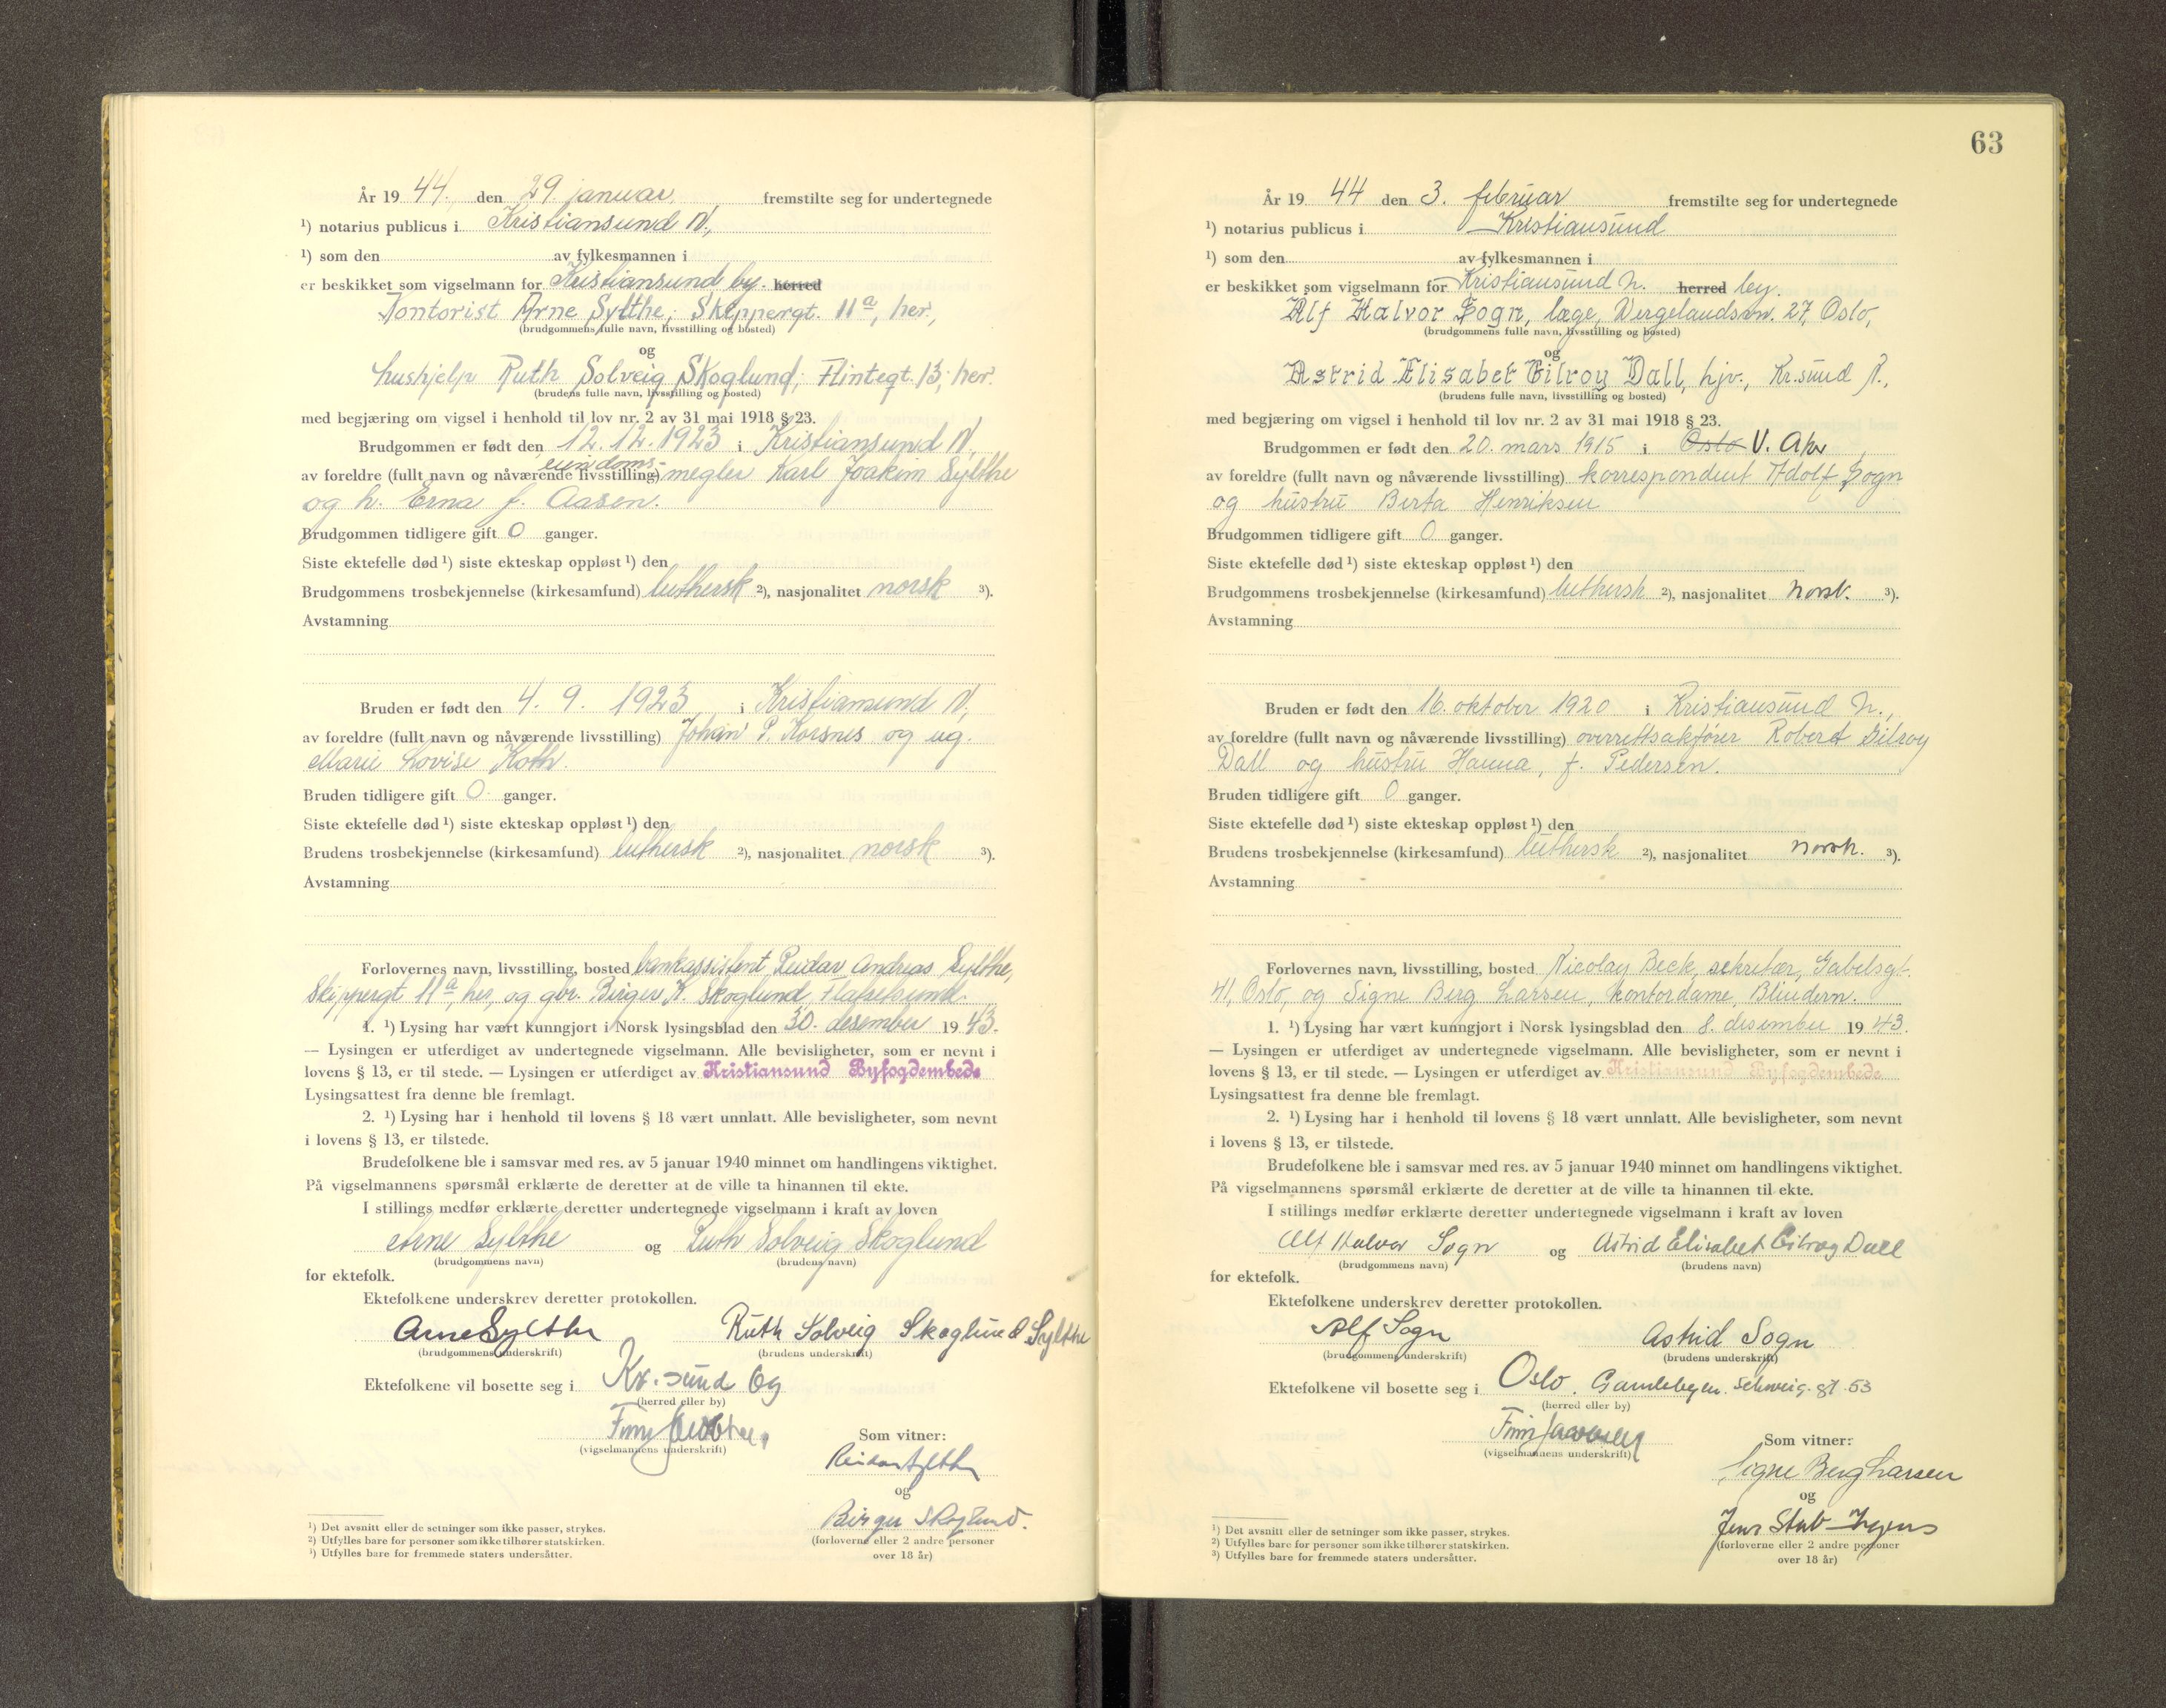 År 19 44. den 29. januar. fremstilte seg for undertegnede
¹) notarius publicus i Kristiansund N.,
¹) som den av fylkesmannen i
er beskikket som vigselmann for Kristiansund by. herred
Kontorist Arne Sylthe, Skippergt. 11ª, her.,
(brudgommens fulle navn, livsstilling og bosted)
og
hushjelp Ruth Solveig Skoglund, Flintegt. 13, her.
(brudens fulle navn, livsstilling og bosted)
med begjæring om vigsel i henhold til lov nr. 2 av 31 mai 1918 § 23.
Brudgommen er født den 12. 12. 1923 i Kristiansund N.
eiendoms-
av foreldre (fullt navn og nåværende livsstilling) megler Karl Joakim Sylthe
og h. Erna f. Aasen.
Brudgommen tidligere gift 0 ganger.
Siste ektefelle død ¹) siste ekteskap oppløst ¹) den
Brudgommens trosbekjennelse (kirkesamfund) luthersk ²), nasjonalitet norsk ³).
Avstamning
Bruden er født den 4. 9. 1923 i Kristiansund N,
av foreldre (fullt navn og nåværende livsstilling) Johan P. Korsnes og ug.
Marie Lovise Hoth.
Bruden tidligere gift 0 ganger.
Siste ektefelle død ¹) siste ekteskap oppløst ¹) den
Brudens trosbekjennelse (kirkesamfund) luthersk ²), nasjonalitet norsk ³).
Avstamning
Forlovernes navn, livsstilling, bosted bankassistent Reidar Andreas Sylthe,
Skippergt 11ª, her, og gbr. Birger K. Skoglund,
1. ¹) Lysing har vært kunngjort i Norsk lysingsblad den 30. desember 19 43.
— Lysingen er utferdiget av undertegnede vigselmann. Alle bevisligheter, som er nevnt i
lovens § 13, er til stede. — Lysingen er utferdiget av Kristiansund Byfogdembede
Lysingsattest fra denne ble fremlagt.
2. ¹) Lysing har i henhold til lovens § 18 vært unnlatt. Alle bevisligheter, som nevnt
i lovens § 13, er tilstede.
Brudefolkene ble i samsvar med res. av 5 januar 1940 minnet om handlingens viktighet.
På vigselmannens spørsmål erklærte de deretter at de ville ta hinannen til ekte.
I stillings medfør erklærte deretter undertegnede vigselmann i kraft av loven
Arne Sylthe og Ruth Solveig Skoglund
(brudgommens navn) (brudens navn)
for ektefolk.
Ektefolkene underskrev deretter protokollen.
Arne Sylthe Ruth Solveig Skoglund Sylthe
(brudgommens underskrift) (brudens underskrift)
Ektefolkene vil bosette seg i Kr.sund by
(herred eller by)
Finn
(vigselmannens underskrift)
Som vitner:
Reidar Sylthe
og
Birger Skoglund.
(forloverne eller 2 andre personer
over 18 år)
¹) Det avsnitt eller de setninger som ikke passer, strykes.
²) Utfylles bare for personer som ikke tilhører statskirken.
³) Utfylles bare for fremmede staters undersåtter.
63
År 19 44 den 3. februar fremstilte seg for undertegnede
¹) notarius publicus i Kristiansund
¹) som den av fylkesmannen i
er beskikket som vigselmann for Kristiansund N. herred by.
Alf Halvor Sogn, læge, Wergelandsvn. 27, Oslo,
(brudgommens fulle navn, livsstilling og bosted)
og
Astrid Elisabet Gilroy Dall, hjv., Kr.sund N.,
(brudens fulle navn, livsstilling og bosted)
med begjæring om vigsel i henhold til lov nr. 2 av 31 mai 1918 § 23.
Brudgommen er født den 20. mars 1915 i Oslo V. Aker
av foreldre (fullt navn og nåværende livsstilling) korrespondent Adolf Sogn
og hustru Berta Henriksen
Brudgommen tidligere gift 0 ganger.
Siste ektefelle død ¹) siste ekteskap oppløst ¹) den
Brudgommens trosbekjennelse (kirkesamfund) luthersk ²), nasjonalitet norsk. ³).
Avstamning
Bruden er født den 16. oktober 1920 i Kristiansund N.,
av foreldre (fullt navn og nåværende livsstilling) overrettsakfører Robert Gilroy
Dall og hustru Hanna, f. Pedersen.
Bruden tidligere gift 0 ganger.
Siste ektefelle død ¹) siste ekteskap oppløst ¹) den
Brudens trosbekjennelse (kirkesamfund) luthersk ²), nasjonalitet norsk. ³).
Avstamning
Forlovernes navn, livsstilling, bosted Nicolay Beck, sekretær, Gabelsgt.
41, Oslo, og Signe Berg Larsen, kontordame, Blindern.
1. ¹) Lysing har vært kunngjort i Norsk lysingsblad den 8. desember 19 43.
— Lysingen er utferdiget av undertegnede vigselmann. Alle bevisligheter, som er nevnt i
lovens § 13, er til stede. — Lysingen er utferdiget av Kristiansund Byfogdembede
Lysingsattest fra denne ble fremlagt.
2. ¹) Lysing har i henhold til lovens § 18 vært unnlatt. Alle bevisligheter, som nevnt
i lovens § 13, er tilstede.
Brudefolkene ble i samsvar med res. av 5 januar 1940 minnet om handlingens viktighet.
På vigselmannens spørsmål erklærte de deretter at de ville ta hinannen til ekte.
I stillings medfør erklærte deretter undertegnede vigselmann i kraft av loven
Alf Halvor Sogn og Astrid Elisabet Gilroy Dall
(brudgommens navn) (brudens navn)
for ektefolk.
Ektefolkene underskrev deretter protokollen.
Alf Sogn Astrid Sogn
(brudgommens underskrift) (brudens underskrift)
Ektefolkene vil bosette seg i Oslo. Gamlebyen. Schweig. gt. 53
(herred eller by)
Finn
(vigselmannens underskrift)
Som vitner:
Signe Berg Larsen
og
Jens Stub
(forloverne eller 2 andre personer
over 18 år)
¹) Det avsnitt eller de setninger som ikke passer, strykes.
²) Utfylles bare for personer som ikke tilhører statskirken.
³) Utfylles bare for fremmede staters undersåtter.